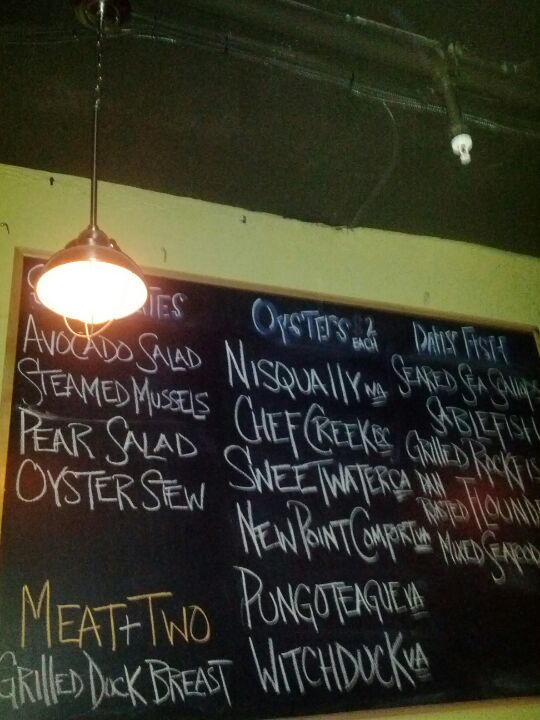 PLATES
AVOCADO SALAD
STEAMED MUSSELS
PEAR SALAD
OYSTER STEW
MEAT+TWO
GRILLED DUCK BREAST
OYSTERS $2 EACH
NISQUALLY WA
CHEF CREEK BC
SWEETWATER CA
NEW POINT COMFORT VA
PUNGOTEAGUE VA
WITCHDUCK VA
DAILY FISH
SEARED SEA SCALLOPS
SABLEFISH
GRILLED ROCKFIS
PAN ROASTED FLOUNDE
MIXED SEAFOOD